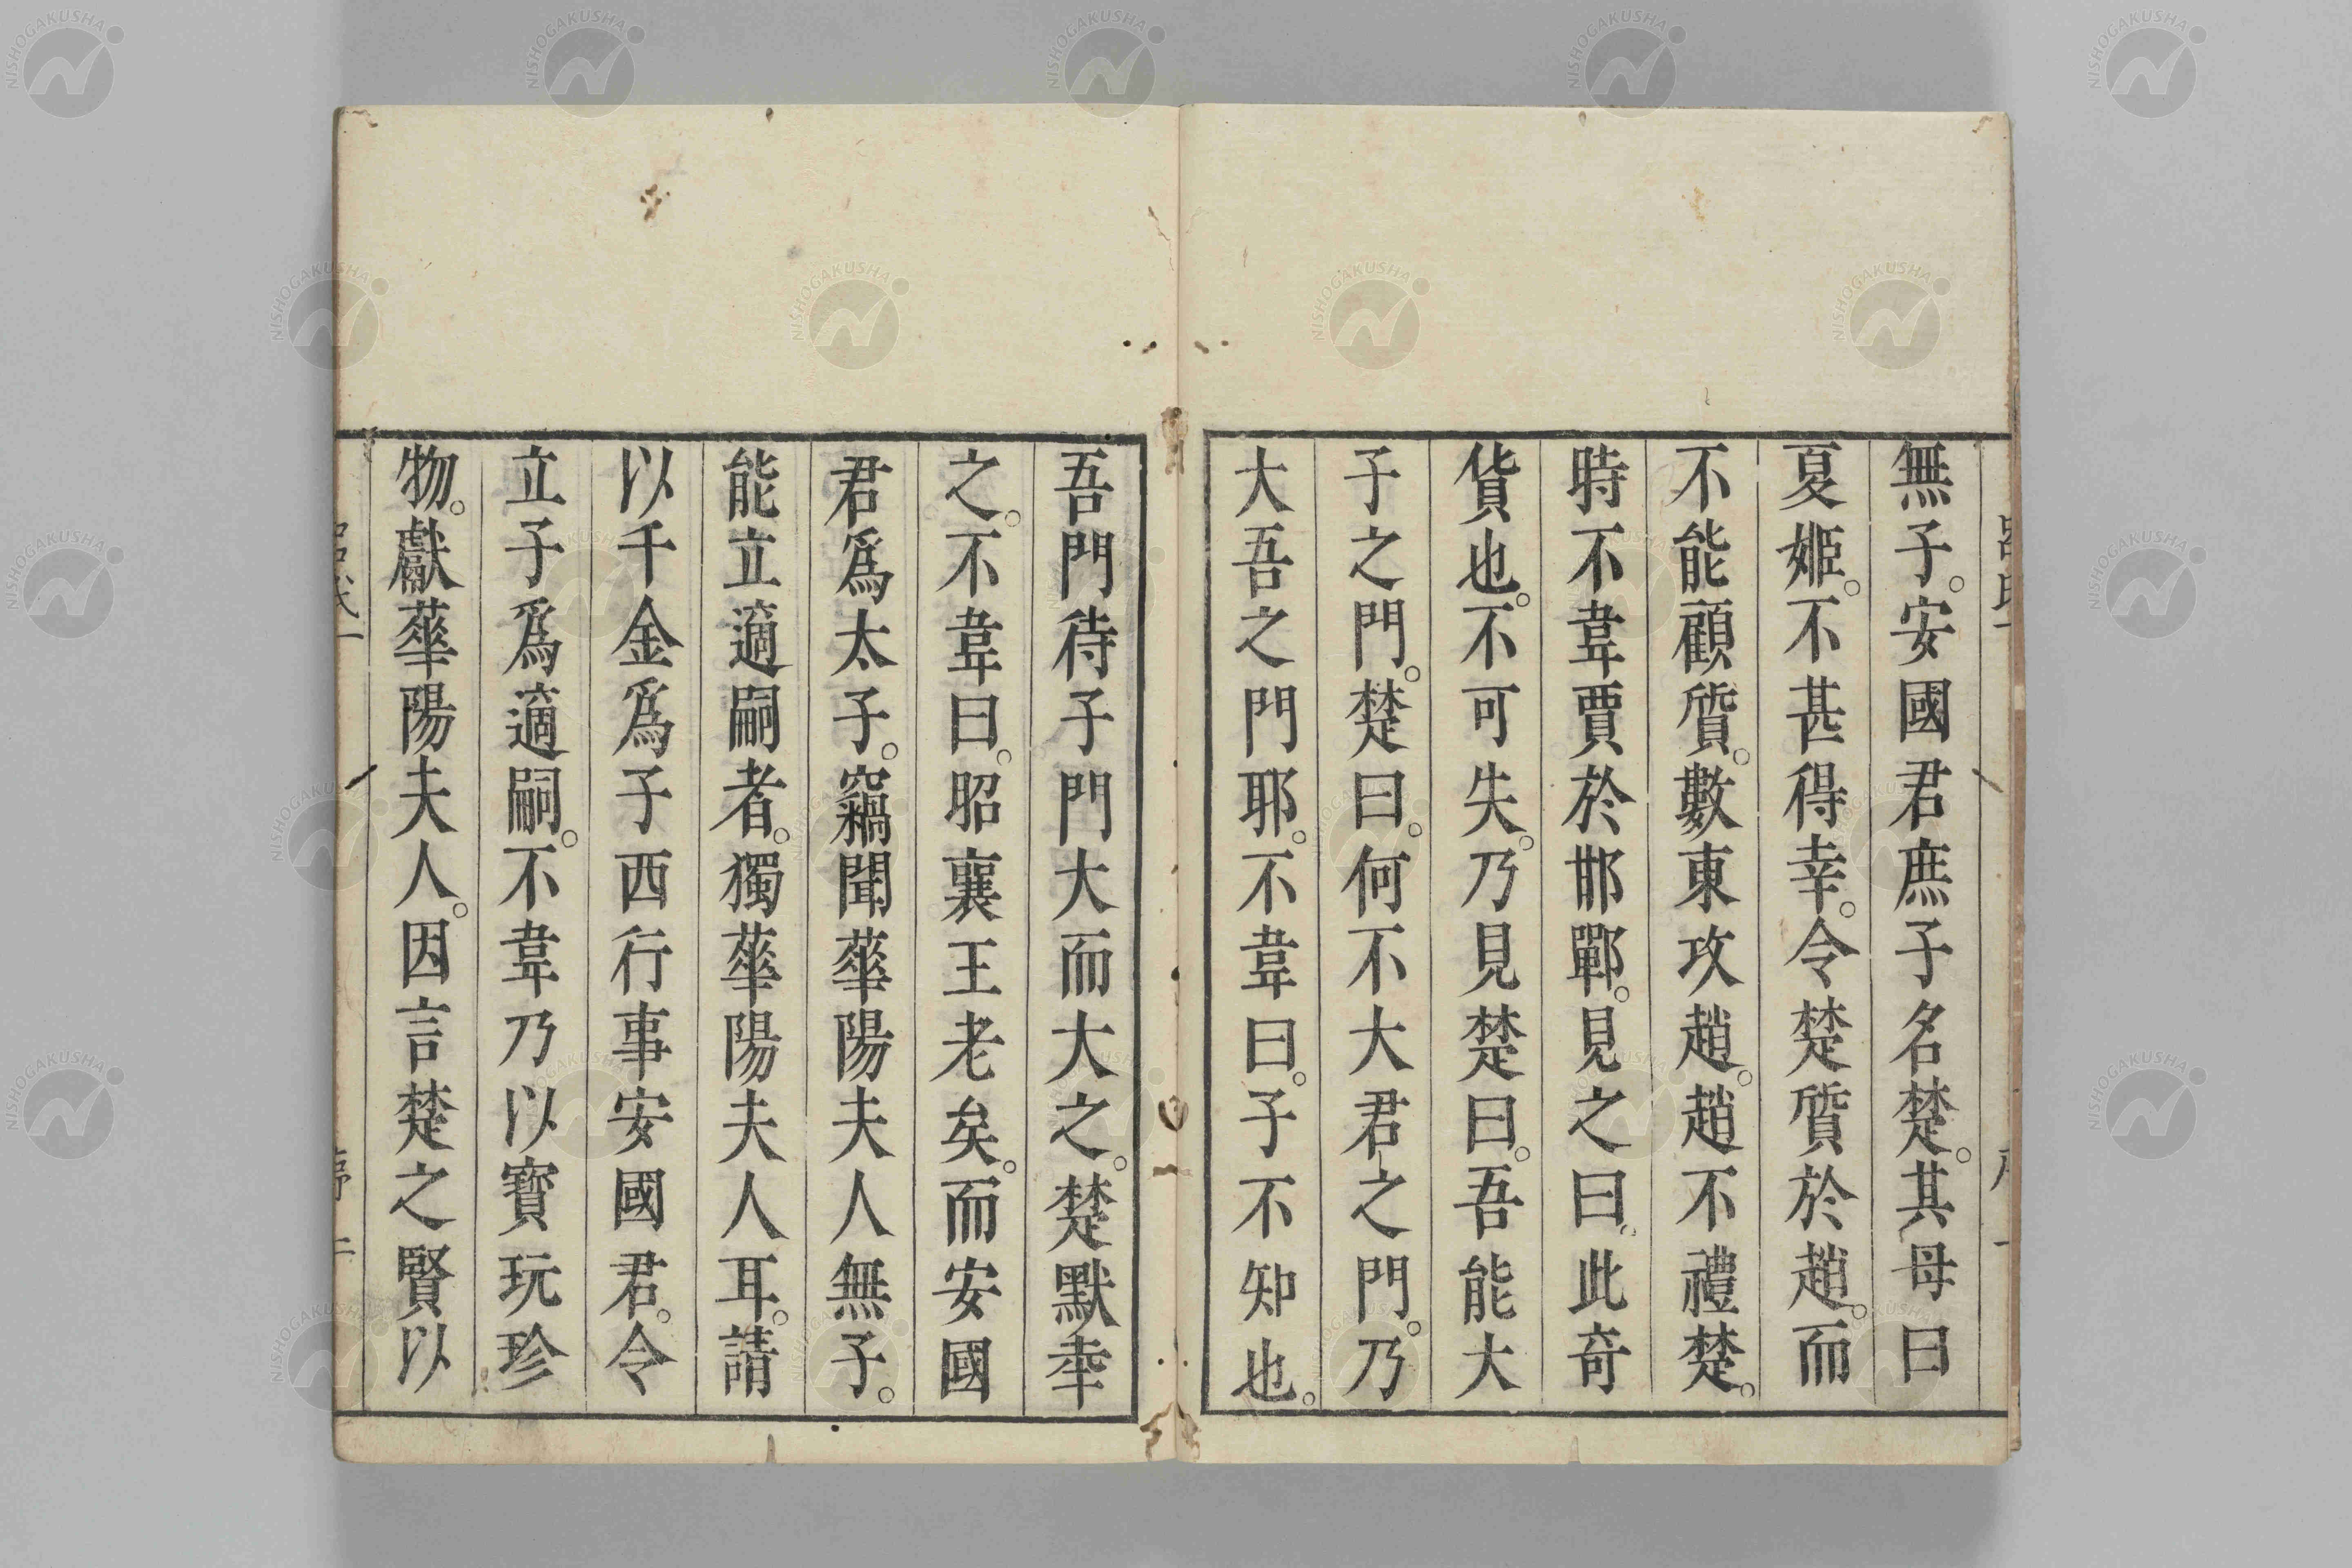 無子。安國君庶子名楚。其母曰
夏姬。不甚得幸。令楚質於趙。而
不能顧質。數東攻趙。趙不禮楚。
時不韋賈於邯鄲。見之曰。此奇
貨也。不可失。乃見楚曰。吾能大
子之門。楚曰。何不大君之門。乃
大吾之門耶。不韋曰。子不知也。
吾門待子門大而大之。楚默幸
之。不韋曰。昭襄王老矣。而安國
君爲太子。竊聞華陽夫人無子。
能立適嗣者。獨華陽夫人耳。請
以千金爲子西行事安國君。令
立子爲適嗣。不韋乃以寶玩珍
物。獻華陽夫人。因言楚之賢以
NISHOGAKUSHA